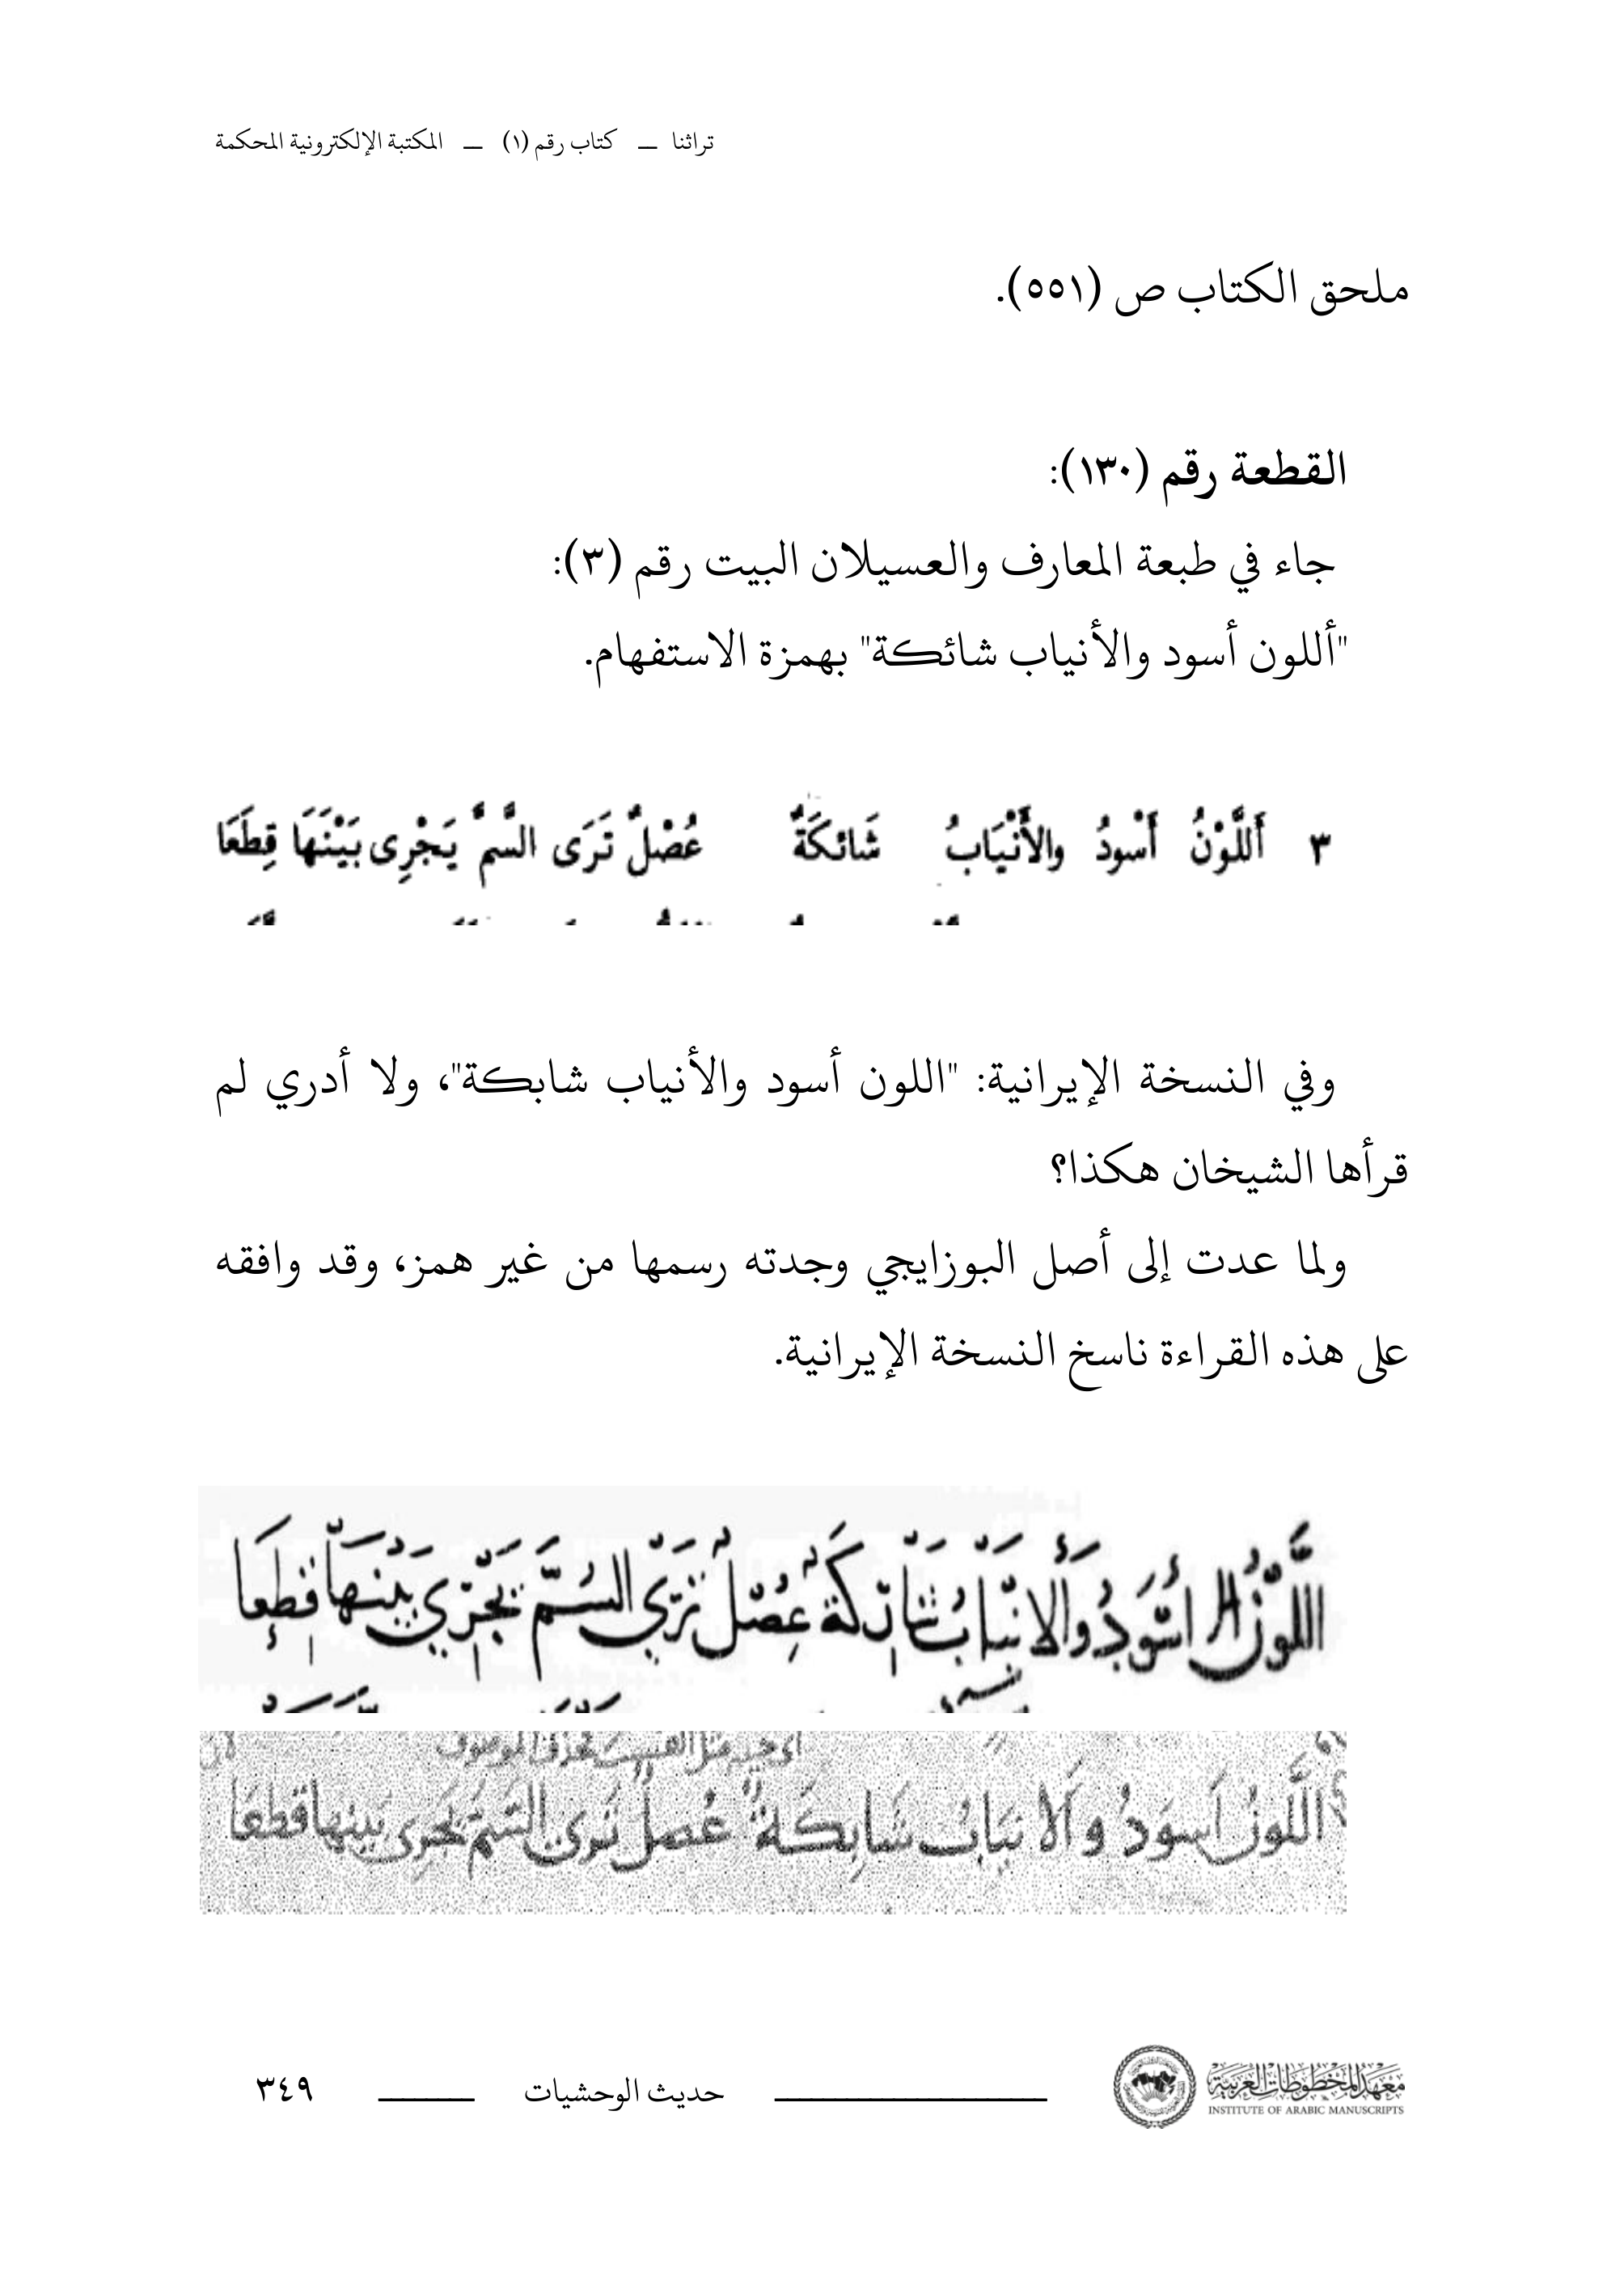 تراثنا — كتاب رقم (١) — المكتبة الإلكترونية المحكمة
ملحق الكتاب ص (٥٥١).
القطعة رقم (١٣٠):
جاء في طبعة المعارف والعسيلان البيت رقم (٣):
"أللون أسود والأنياب شائكة" بهمزة الاستفهام.
٣ أَللَّوْنُ أَسْودُ والأَنْيَابُ شَائكَةٌ عُصْلٌ تَرَى السَّمَّ يَجْرِى بَيْنَهَا قِطَعَا
وفي النسخة الإيرانية: "اللون أسود والأنياب شابكة"، ولا أدري لم
قرأها الشيخان هكذا؟
ولما عدت إلى أصل البوزايجي وجدته رسمها من غير همز، وقد وافقه
على هذه القراءة ناسخ النسخة الإيرانية.
اللَّوْنُ اسْوَدُ وَالأنْيَابُ شَابِكَةٌ عُصْلٌ تَرَي السُمَّ يَجْرِي بَيْنَهَا قِطَعا
اللَّونُ اَسوَدُ وَالأنيَابُ شَابِكَةٌ عُصلٌ تَرى السَّمَّ يَجرِى بَينَها قِطعَا
معهد المخطوطات العربية
INSTITUTE OF ARABIC MANUSCRIPTS
حديث الوحشيات
٣٤٩